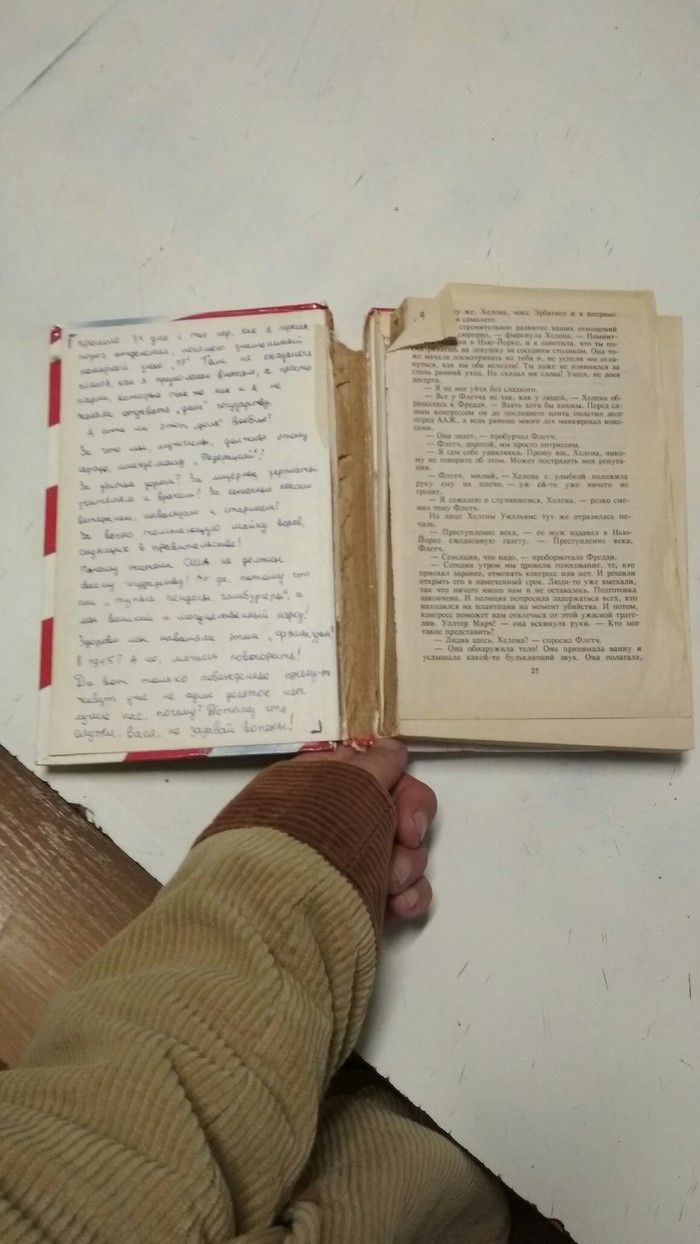 Прошло 34 дня с тех пор, как я пересек
порог отделения, носящего знаменитый
номер "13"! Там не оказалось
психов, как я предполагал вначале, а просто
парни, которые так же как и я не
желали отдавать „долг" государству.
А есть ли этот долг вообще?
За что мы, мужчины, должны этому
городу, именуемому „Федерацией"?
За убитые дороги? За мизерные зарплаты
учителям и врачам? За копеечные пенсии
ветеранам, инвалидам и старикам?
За вечно толстеющую шайку воров,
сидящих в правительстве!
Почему жители США не должны
своему государству? Ах да, потому что
они „тупые пендосы, гамбургеры", а
мы великий и могущественный народ!
Здорово мы наваляли этим „фрицам"
В 1945? А чо, можем повторить!
Да вот только побеждённые почему-то
живут уже не один десяток лет
лучше нас, почему? Потому что
служи, Вася, не задавай вопросы!
ну же, Хелена, мисс Эрбатнот и я впервые
в самолете.
стремительное развитие ваших отношений
сюрприз, — фыркнула Хелена. — Помнит-
в Нью-Йорке, и я заметила, что ты по-
сматриваешь на девушку за соседним столиком. Она то-
же начала посматривать на тебя и, не успели мы огля-
нуться, как вы оба исчезли! Ты даже не извинился за
столь ранний уход. Не сказал ни слова! Ушел, не доев
десерта.
— Я не мог уйти без сладкого.
— Все у Флетча не так, как у людей, — Хелена об-
ращалась к Фредди. — Взять хотя бы взносы. Перед са-
мым конгрессом он до последнего цента оплатил долг
перед ААЖ, а ведь раньше много лет манкировал взно-
сами.
— Она знает, — пробурчал Флетч.
— Флетч, дорогой, мы просто потрясены.
— Я сам себе удивляюсь. Прошу вас, Хелена, нико-
му не говорите об этом. Может пострадать моя репута-
ция.
— Флетч, милый, — Хелена с улыбкой положила
руку ему на плечо, — уж ей-то уже ничего не
грозит.
— Я сожалею о случившемся, Хелена, — резко сме-
нил тему Флетч.
На лице Хелены Уилльямс тут же отразилась пе-
чаль.
— Преступление века, — ее муж издавал в Нью-
Йорке ежедневную газету. — Преступление века,
Флетч.
— Сенсация, что надо, — пробормотала Фредди.
— Сегодня утром мы провели голосование, те, кто
приехал заранее, отменять конгресс или нет. И решили
открыть его в намеченный срок. Люди-то уже выехали,
так что ничего иного нам и не оставалось. Подготовка
закончена. И полиция попросила задержаться всех, кто
находился на плантации на момент убийства. И потом,
конгресс поможет нам отвлечься от этой ужасной траге-
дии. Уолтер Марч! — она вскинула руки. — Кто мог
такое представить?
— Лидия здесь, Хелена? — спросил Флетч.
— Она обнаружила тело! Она принимала ванну и
услышала какой-то булькающий звук. Она полагала,
27